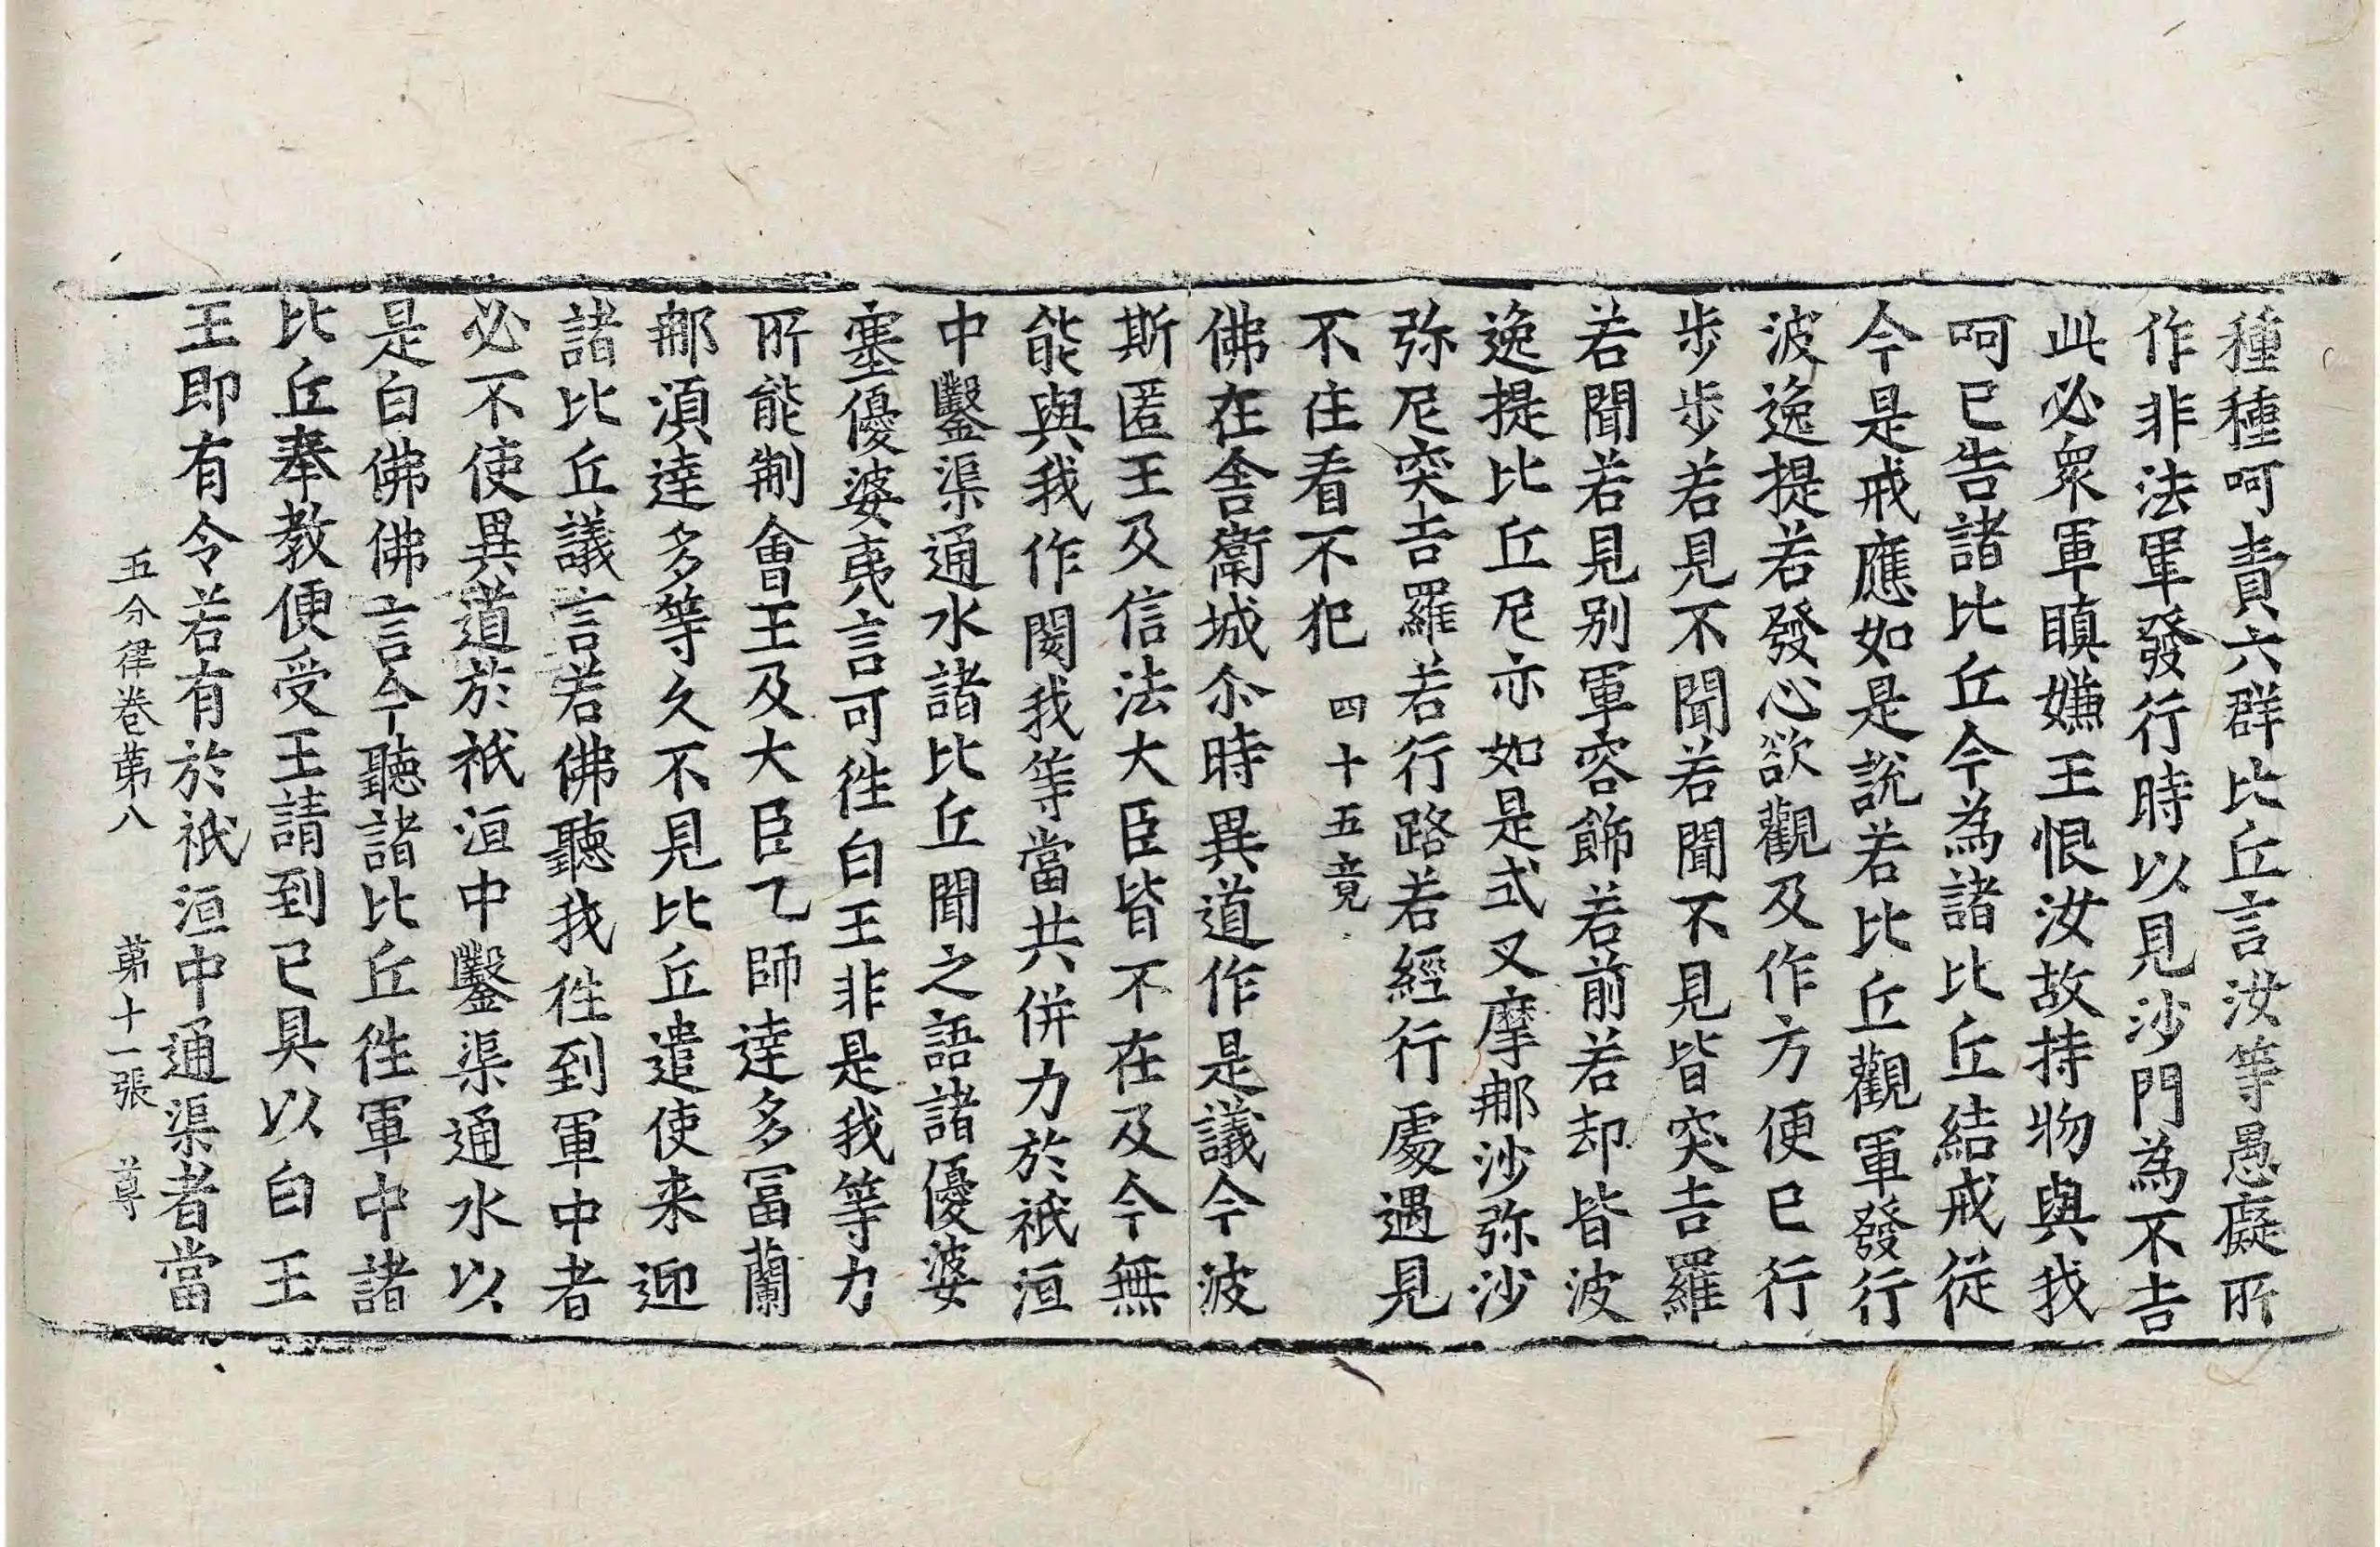 種種呵責六群比丘言汝等愚癡所
作非法軍發行時以見沙門為不吉
此必衆軍瞋嫌王恨汝故持物與我
呵已告諸比丘今為諸比丘結戒從
今是戒應如是說若比丘觀軍發行
波逸提若發心欲觀及作方便已行
步步若見不聞若聞不見皆突吉羅
若聞若見别軍容飾若前若却皆波
逸提比丘尼亦如是式叉摩那沙弥沙
弥尼突吉羅若行路若經行處遇見
不住看不犯 四十五竟
佛在舍衛城尒時異道作是議今波
斯匿王及信法大臣皆不在及今無
能與我作閡我等當共併力於祇洹
中鑿渠通水諸比丘聞之語諸優婆
塞優婆夷言可徃白王非是我等力
所能制會王及大臣乙師達多冨蘭
那湏達多等久不見比丘遣使来迎
諸比丘議言若佛聽我徃到軍中者
必不使異道於祇洹中鑿渠通水以
是白佛佛言今聽諸比丘徃軍中諸
比丘奉教便受王請到已具以白王
王即有令若有於祇洹中通渠者當
五分律卷苐八 苐十一張 尊